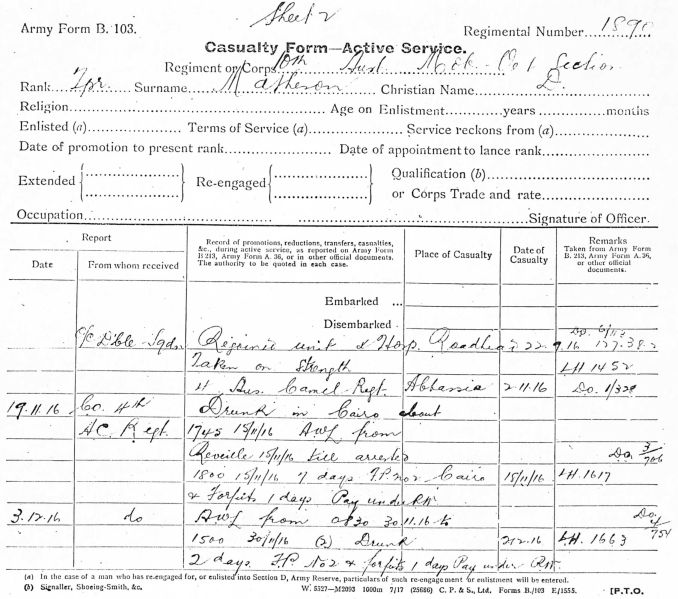 Sheet 2
Army Form B. 103.
Regimental Number 1890
Casualty Form—Active Service.
Regiment or Corps 10th Aust Mob. Section
Rank Tpr. Surname Matheson Christian Name D.
Religion Age on Enlistment years months
Enlisted (a) Terms of Service (a) Service reckons from (a)
Date of promotion to present rank Date of appointment to lance rank
Extended { } Re-engaged { } Qualification (b)
or Corps Trade and rate
Occupation Signature of Officer.
Report
Date
From whom received
Record of promotions, reductions, transfers, casualties, &c., during active service, as reported on Army Form B 213, Army Form A. 36, or in other official documents. The authority to be quoted in each case.
Place of Casualty
Date of Casualty
Remarks
Taken from Army Form B. 213, Army Form A. 36, or other official documents.
Embarked ...
Disembarked
O/C Dble. Sqdn Rejoined unit Hosp. Roadhead 22.9.16
Taken on Strength LH 1452
4 Aus. Camel Regt. Abbassia 2.11.16 Do. 1/329
19.11.16 Co. 4th Drunk in Cairo about
A C. Regt. 1745 15/11/16 AWL from
Reveille 15/11/16 till arrested Do. 3/706
1800 15/11/16 7 days F.P. No 2 Cairo 15/11/16 LH. 1617
& forfeits 1 days Pay under RW
3.12.16 do AWL from 0630 30.11.16 to Do. 4/754
1500 30/11/16 (2) Drunk 2.12.16 LH. 1663
2 days F.P. No 2 & forfeits 1 days Pay under RW.
(a) In the case of a man who has re-engaged for, or enlisted into Section D, Army Reserve, particulars of such re-engagement or enlistment will be entered.
(b) Signaller, Shoeing-Smith, &c. W. 5527—M2093 1000m 7/17 (25686) C. P. & S., Ltd. Forms B./103 E/1555. [P.T.O.